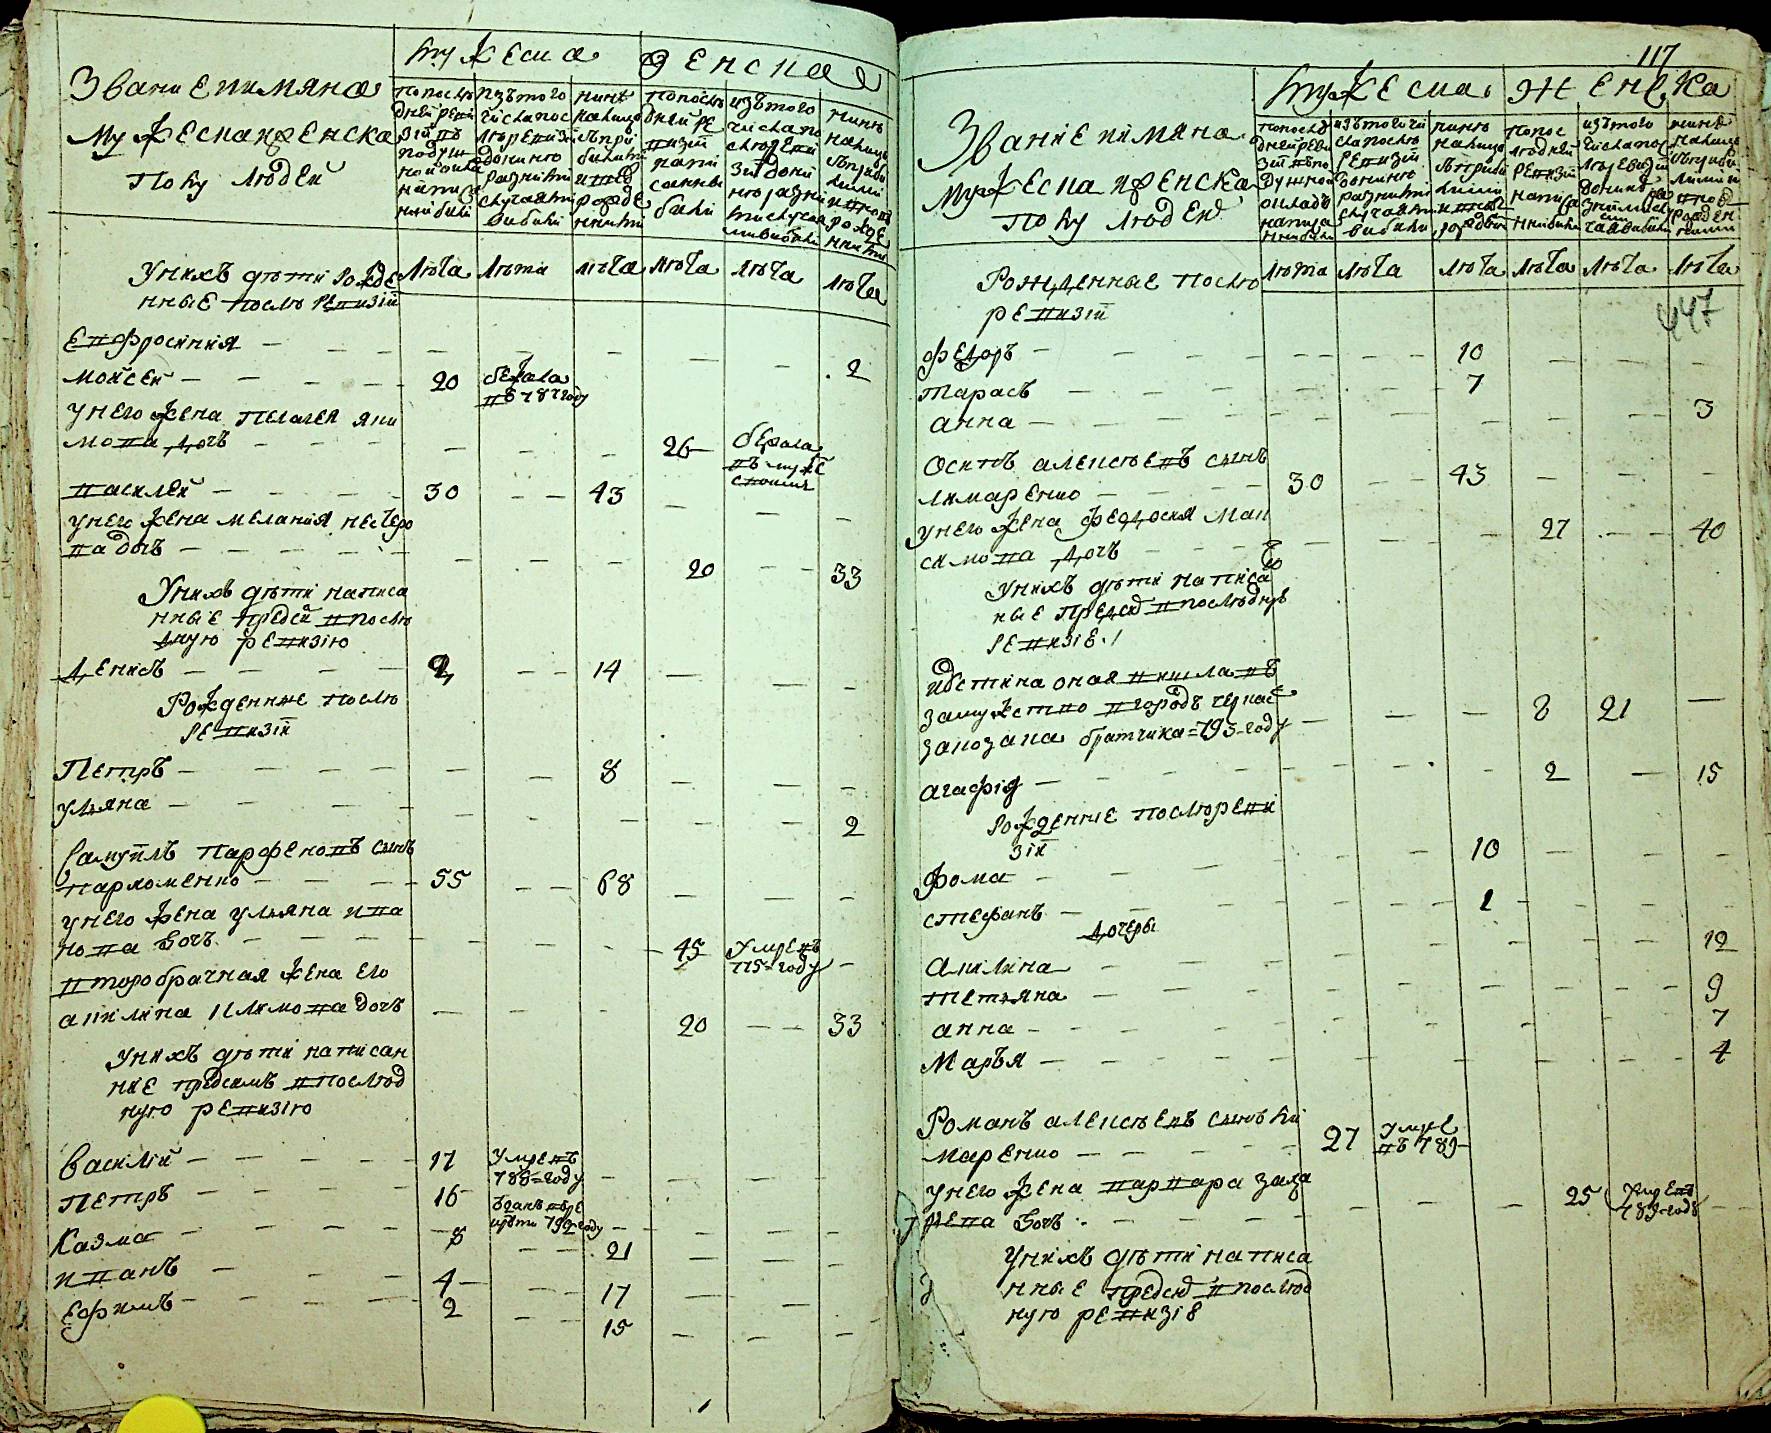 Звание имяна
Мужеска и женска
полу людей
мужеска
женска
по послѣ
дней реви
зіи въ
подуш
ной окла
написа
нныи были
изъ того
числа пос
лѣ ревизи
до ныне
разными
случаями
выбыли
ныне
налицо
съ при
былыми
и вно
рожде
нными
по послѣ
дней ре
визіи
напи
санны
были
изъ того
числа по
слѣ реви
зіи до ны
не разны
ми случая
ми выбыли
ныне
налицо
съ прибы
лыми
и вново
рожде
нными
лѣта лѣта лѣта лѣта лѣта лѣта
У нихъ дѣти рожде
нные послѣ ревизіи
Евфросиния — 2
Мойсей — 20 бежалъ
въ 787 году
у него жена Пелагея яки
мова дочь — 26 бежала
въ муже
Василей — 30 — 43
у него жена Мелания несте­ро
ва дочь — 20 — 33
У нихъ дѣти написа
нные предъ сей в послѣ
днюю ревизию
Денисъ — 2 — 14
Рожденные послѣ
ревизіи
Петръ — 8
Ульяна — 2
Самуилъ Парфеновъ сынъ
пархоменко — 55 — 68
у него жена ульяна ива
нова дочь — 45 умре въ
795 году
второбрачная жена его
акилина климова дочь — 20 — 33
У нихъ дѣти написан
ние предъ симъ в послѣд
нюю ревизію
Василій — 17 умре въ
788 году
Петръ — 16 взанъ в ре
круты 792 году
Казма — 8 — 21
Иванъ — 4 — 17
Ефимъ — 2 — 15
117
Звание имяна
Мужеска и женска
полу людей
мужеска
женска
по послѣ
дней реви
зіи в по
душной
окладъ
написа
нныи были
изъ того чи
сла послѣ
ревизіи
до ныне
разными
случаями
выбыли
ныне
налицо
съ прибы
лыми
и вново
рожден
по пос
лѣдней
ревизіи
написа
нны были
изъ того
числа пос
лѣ ревизіи
до ныне ра
зными слу
чаи выбыли
ныне
налицо
съ прибы
лыми и
вново
рожден
ными
лѣта лѣта лѣта лѣта лѣта лѣта
447
Рожденные послѣ
ревизіи
Федоръ — 10
Тарасъ — 7
анна — 3
Осипъ алексѣевъ сынъ
лимаренко — 30 — 43
у него жена Федосия Мак
симова дочь — 27 — 40
У нихъ дѣти написа
ные предъ сею в послѣднѣ
ревизіе
Устина оная вышла въ
замужство в городъ черкас
за козака братчика 793 году — 8 21 —
агафія — 2 — 15
Рожденние послѣ реви
зіи
Фома — 10
Стефанъ — 1
дочеры
Акилина — 12
Тетяна — 9
анна — 7
Марья — 4
Романъ алексѣевъ сынъ ли
маренко — 27 умре
въ 789
у него жена варвара заха
рева дочь — 25 умре въ
789 году
У нихъ дѣти написа
нные предъ сею в послѣд
нюю ревизіе